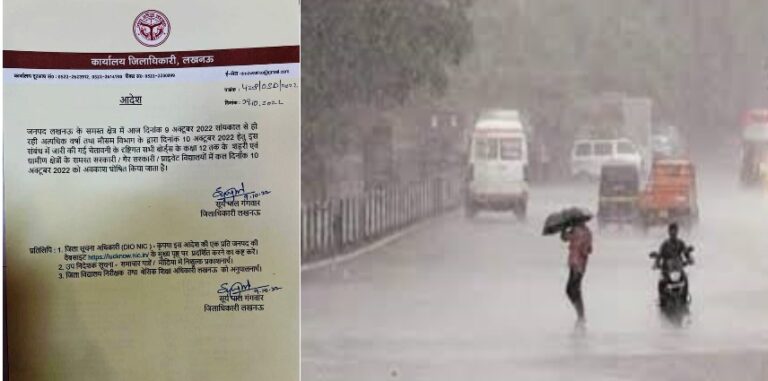 कार्यालय जिलाधिकारी, लखनऊ
आदेश
जनपद लखनऊ के समस्त क्षेत्र में आज दिनांक 9 अक्टूबर 2022 सांयकाल से हो
रही अत्यधिक वर्षा तथा मौसम विभाग के द्वारा दिनांक 10 अक्टूबर 2022 हेतु इस
संबंध में जारी की गई चेतावनी के दृष्टिगत सभी बोर्ड्स के कक्षा 12 तक के शहरी एवं
ग्रामीण क्षेत्रों के समस्त सरकारी / गैर सरकारी / प्राइवेट विद्यालयों में कल दिनांक 10
अक्टूबर 2022 को अवकाश घोषित किया जाता है।
सूर्य पाल गंगवार
जिलाधिकारी लखनऊ
प्रतिलिपि : 1. जिला सूचना अधिकारी (DIO NIC) - कृपया इस आदेश की एक प्रति जनपद की
वेबसाइट https://lucknow.nic.in/ के मुख्य पृष्ठ पर प्रदर्शित करने का कष्ट करें।
2. उप निदेशक सूचना - समाचार पत्रों / मीडिया में निशुल्क प्रकाशनार्थ।
3. जिला विद्यालय निरीक्षक तथा बेसिक शिक्षा अधिकारी लखनऊ को अनुपालनार्थ।
सूर्य पाल गंगवार
जिलाधिकारी लखनऊ